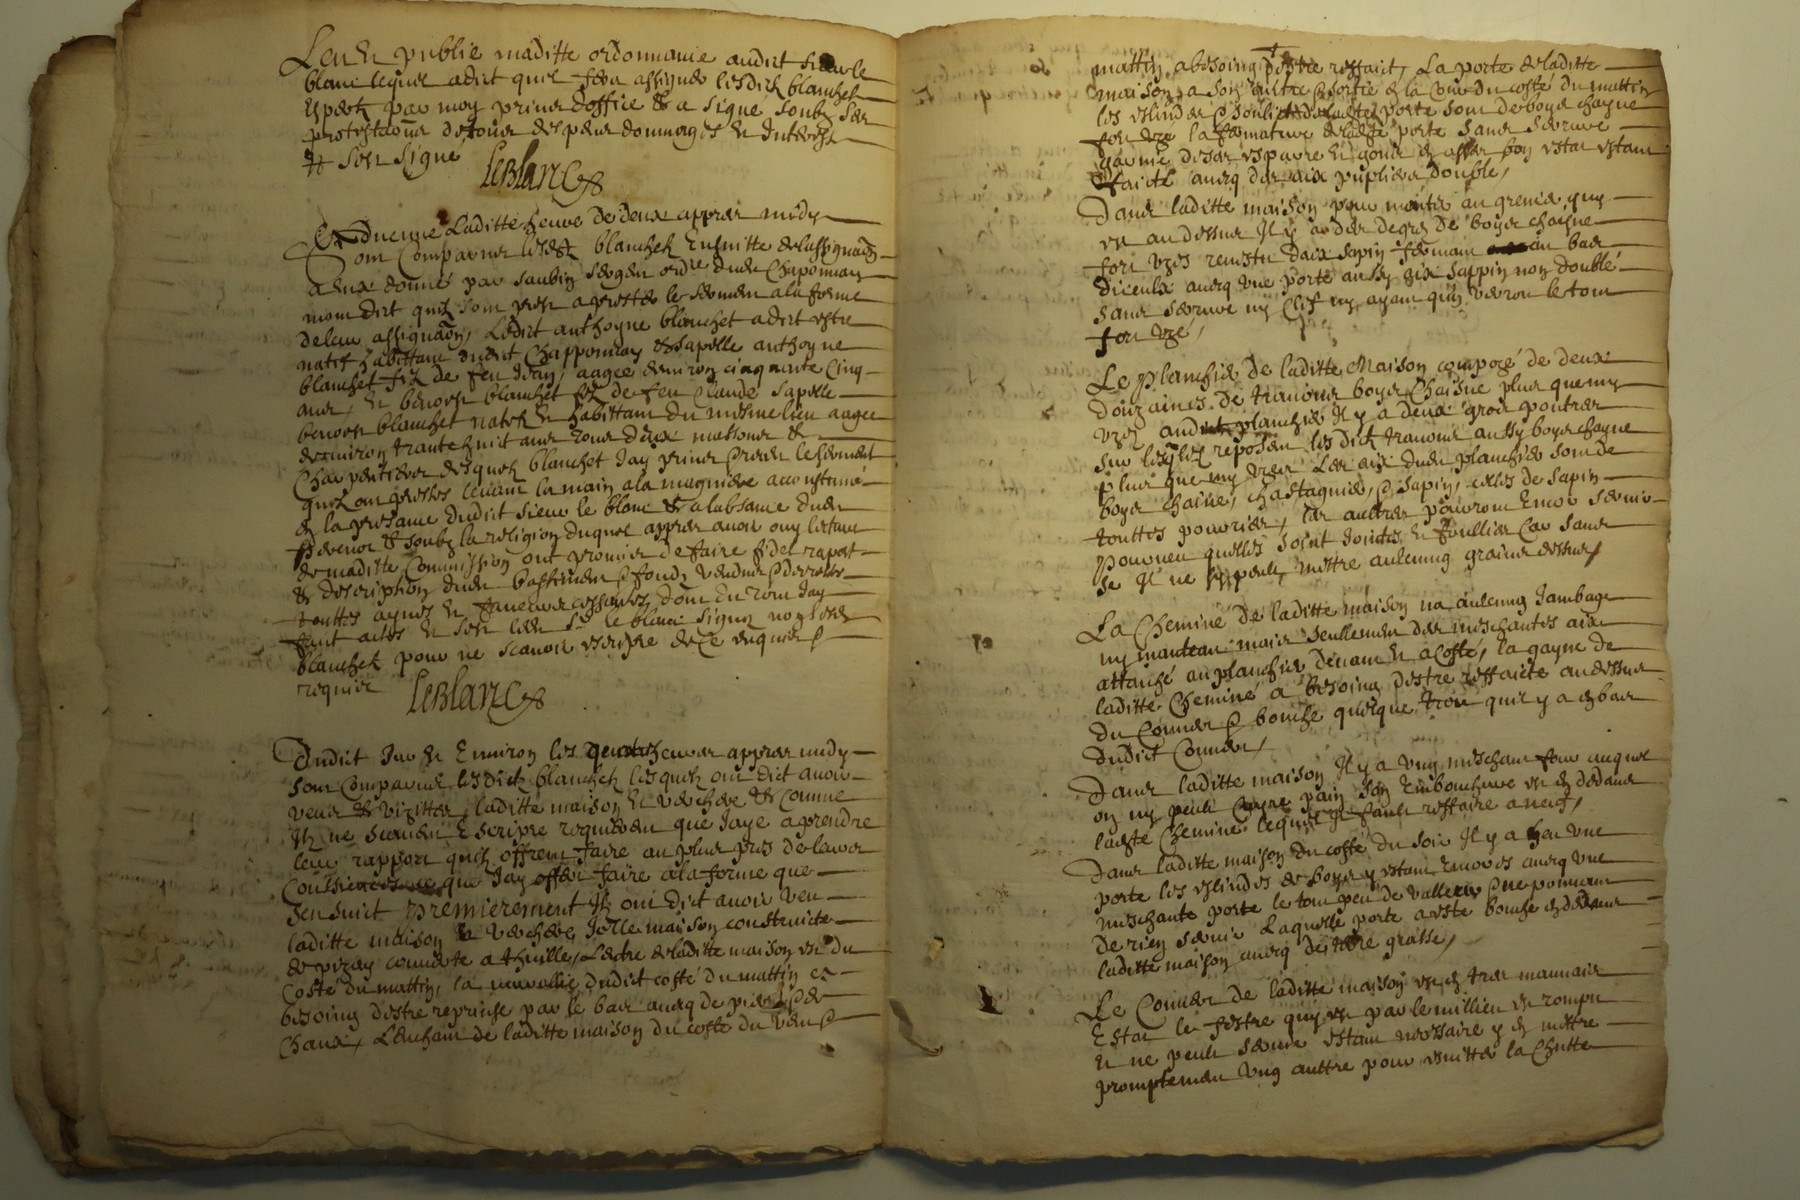 Leu et publié maditte ordonnance audit sieur le
blanc lequel a dict que fera assigner lesdictz blanchetz
expertz par moy prins d'office et a signé soubz ses
protestations de tous despens dommages et interestz
et s'est signé
LeBlanc
Et advenue laditte heure de deux appres midy
sont comparus lesdictz blanchetz ensuitte de l'assignaon
a eux donné par saubin sergen ord.re dudit Chaponnay
mont dict quilz sont prestz a prester le sermen a la forme
de leur assignaon, Ledict anthoyne blanchet a dict estre
natif habittant dudict Chapponnay et sapelle anthoyne
blanchet filz de feu Jean, aagee denviron cinquante cinq
ans, et benoist blanchet filz de feu Claude sapelle
benoist blanchet natif et habittant du mesme lieu aagee
denviron trante huict ans tous deux massons et
Charpentiers desquelz blanchet Jay prins et receu le serment
quilz ont prestes levant la main a la magniere accoustumé
en la presance dudict sieur le blanc et a labsance dudit
et soubz la religion duquel appres avoir ouy lecture
de maditte Commission ont promis de faire fidel raport
et description dudit bastimen et fondz
touttes aynes et dont du tout Jay
faict actes et s'est ledit s.r le blanc signé non lesdictz
blanchetz pour ne scavoir escripre de ce enquis et
requis
LeBlanc
Dudict Jour et Environ les quatre heures appres midy
sont Comparus lesdictz blanchetz lesquelz ont dict avoir
veus et vizittes laditte maison et verchere et Comme
Ilz ne scavent Escripre requierent que Jaye a prendre
leur rapport quilz offrent faire au plus pres de leurs
Consciences que Jay offert faire a la forme que
sensuict Premierement Ilz ont dict avoir veu
laditte maison et verchere Jcelle maison constructe
de pizay couverte a thuilles, Lastre de laditte maison est du
Costé du mattin, la muraille dudict costé du mattin a
besoing destre reprinse par le bas avecq de pierres et de
Chaux, Lenchant de laditte maison du coste du vent et
mattin a besoing destre reffaict, La porte de laditte
maison a son entre et sortie en la Cour du costé du mattin
les eslindes et soulier de laditte porte sont de boys chayne
fort uzé la fermature de laditte porte sans serrure
garnie de ses espares et gonts en assez bon estat estant
faicte avecq des aix pupliers double,
Dans laditte maison pour monter au grenier quy
est au dessus Il y a des degres de boys chaisne
fort uzes revestu daix sapin fermant au bas
diceulx avecq une porte aussy aix sappin non doublé
sans serrure ny clef ny ayant quun verroux le tout
fort uzé,
Le planchier de laditte Maison composé de deux
douzaines de travons boys Chaisne plus que my
uzés audict planchier Il y a deux gros poutres
sur lesquelz reposent lesdictz travons aussy boys chayne
plus que my uzes Les aix dudit planchier sont de
boys chaisne, chastagnier, et sapin, celles de sapin
touttes pourries, les aultres pourront Encor servir
pourveu quelles soint Jointes et feullies car sans
se Il ne sy peult mettre aulcung grains dessus
La Cheminé de laditte maison na aulcung Jambage
ny manteau mais seullemen des meschantes aix
attaché au planchier devant et a Costé, la gayne de
laditte Cheminé a besoing destre reffaicte au dessus
du Couvert et bouche quelque trou quil y a en bas
dudict Couvert,
Dans laditte maison Il y a ung meschant four auquel
on ny peult Cuyre pain son Embouchure est en dedans
laditte Cheminé lequel Il fault reffaire a neuf,
Dans laditte maison du costé du soir Il y a heu une
porte les eslindes de boys y estant Encores avecq une
meschante porte le tout peu de valleur et ne pouvant
de rien servir Laquelle porte a esté bouche en dedans
laditte maison avecq de terre grasse,
Le Couvert de laditte maison est en tres mauvais
Estat le festre quy est par le millieu est rompu
et ne peult servir estant necessaire y en mettre
promptemen ung aultre pour esvitter la Chutte